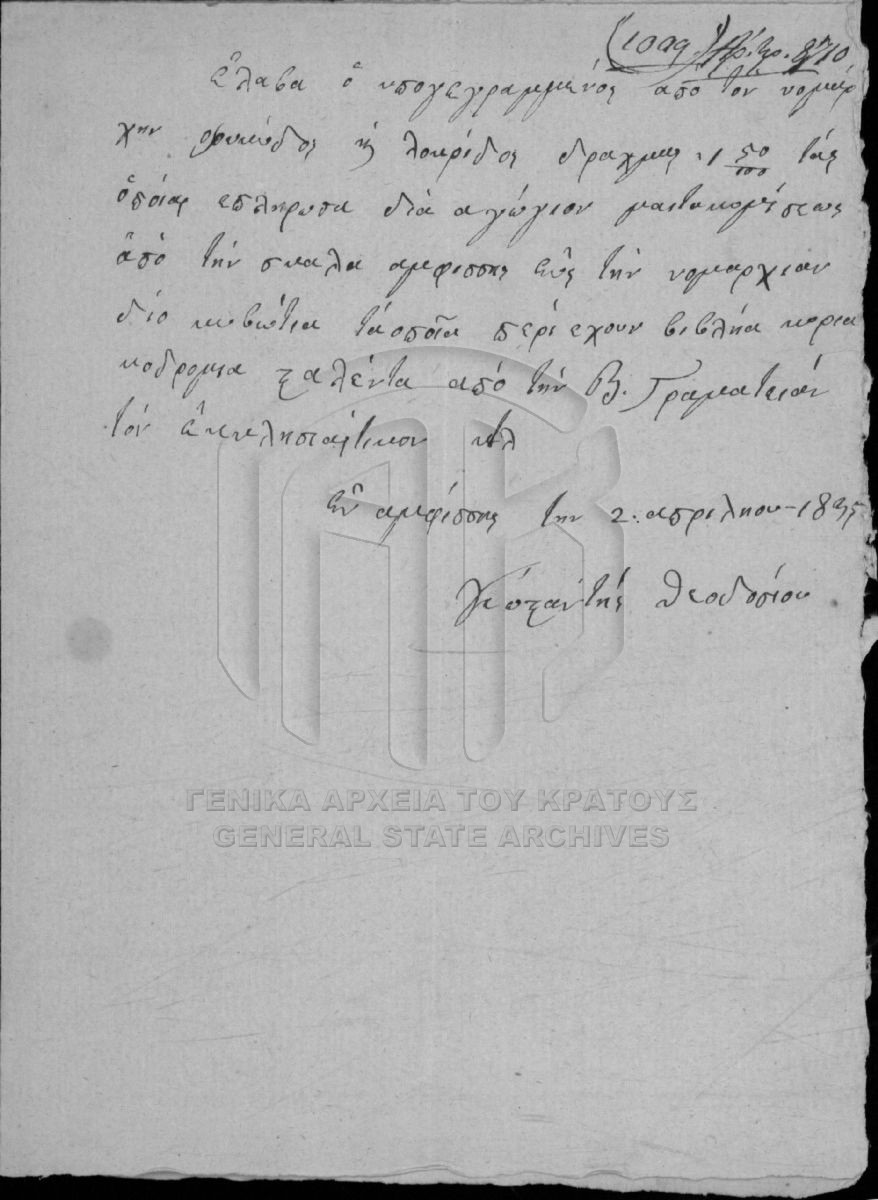 (1009.) Αρ. πρ. 8710
ἔλαβα ὁ υπογεγραμμένος απο τον νομάρ
χην φοκιδος κ λοκρίδος δραχμας 1 50/100 τάς
ὁποίας επληρωσα διά αγώγιον μαιτακομήσεως
ἀπό τὴν σκαλα αμφισσης εὸς τὴν νομαρχιαν
δίο κιβώτια τάοποῖα περιεχουν βιβλήα κορια
κοδρομια σταλέντα από τὴν Β. Γραματειάν
τόν ἐκκλησιαςτικον κτλ
εν αμφισσης την 2. απριληου 1835
θεοδοσίου
ΓΕΝΙΚΑ ΑΡΧΕΙΑ ΤΟΥ ΚΡΑΤΟΥΣ
GENERAL STATE ARCHIVES